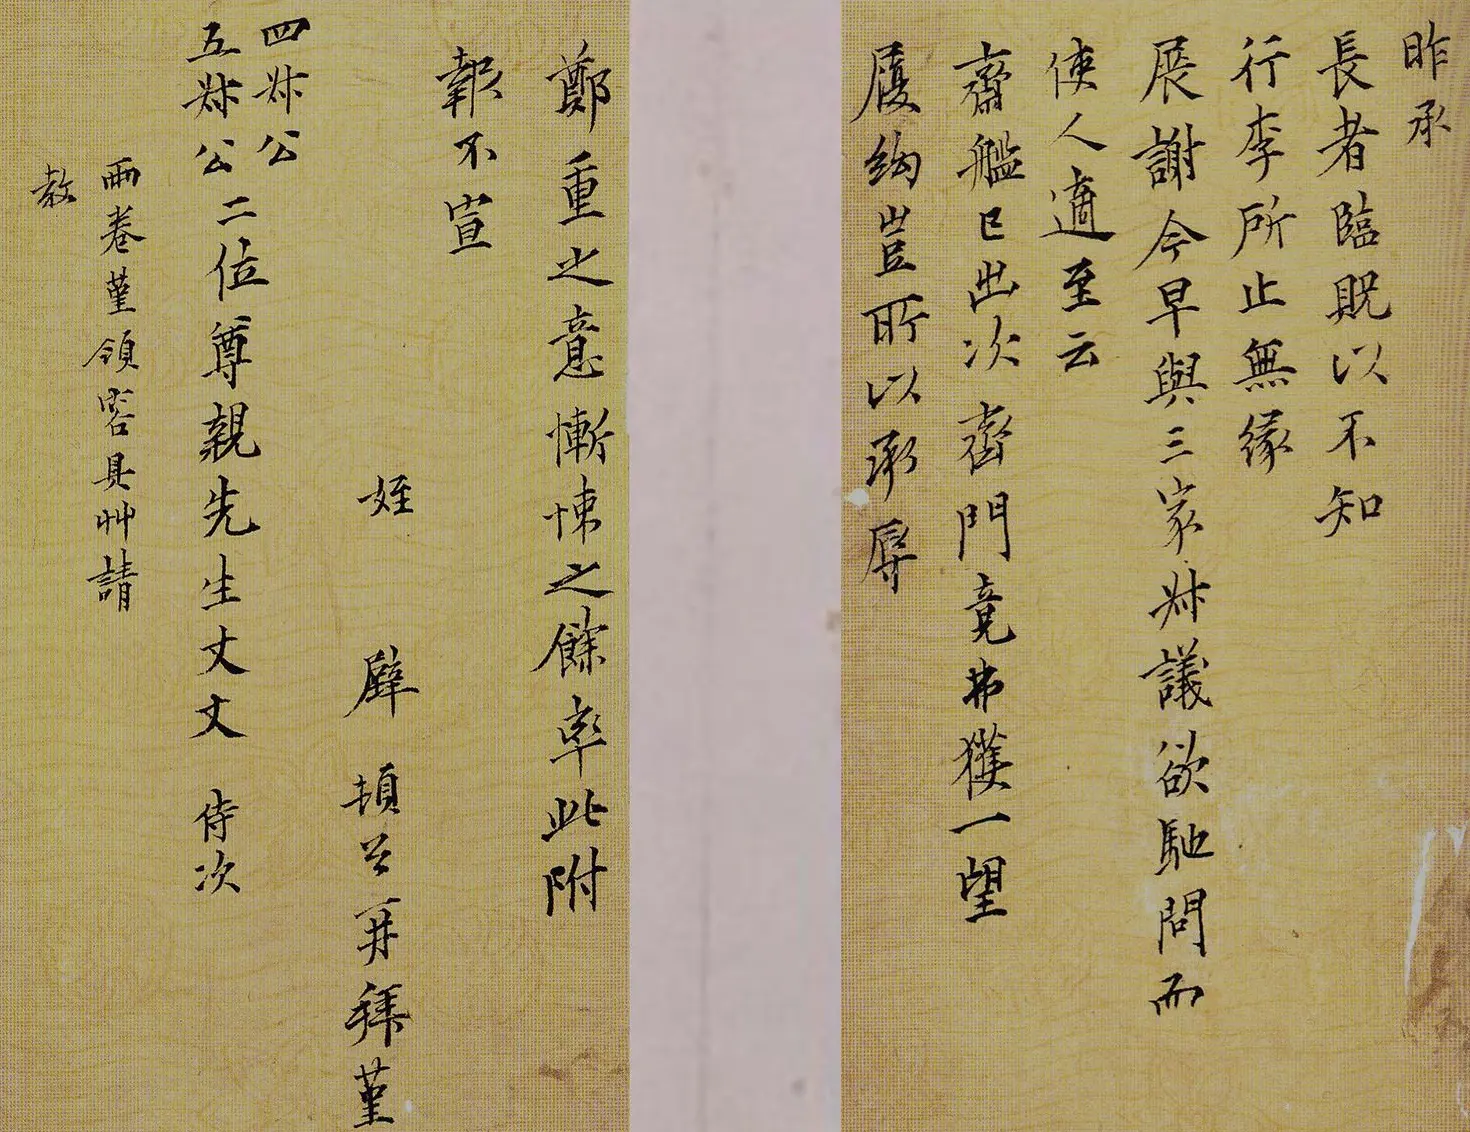 昨承
長者臨貺以不知
行李所止無緣
展謝今早與三家叔議欲馳問而
使人適至云
齋艦已出次齊門竟弗獲一望
履絇豈所以承辱
鄭重之意慚悚之餘率此附
報不宣
姪 辟 頓首再拜菫
四叔公
五叔公二位尊親先生丈丈 侍次
兩卷菫領容具艸請
教